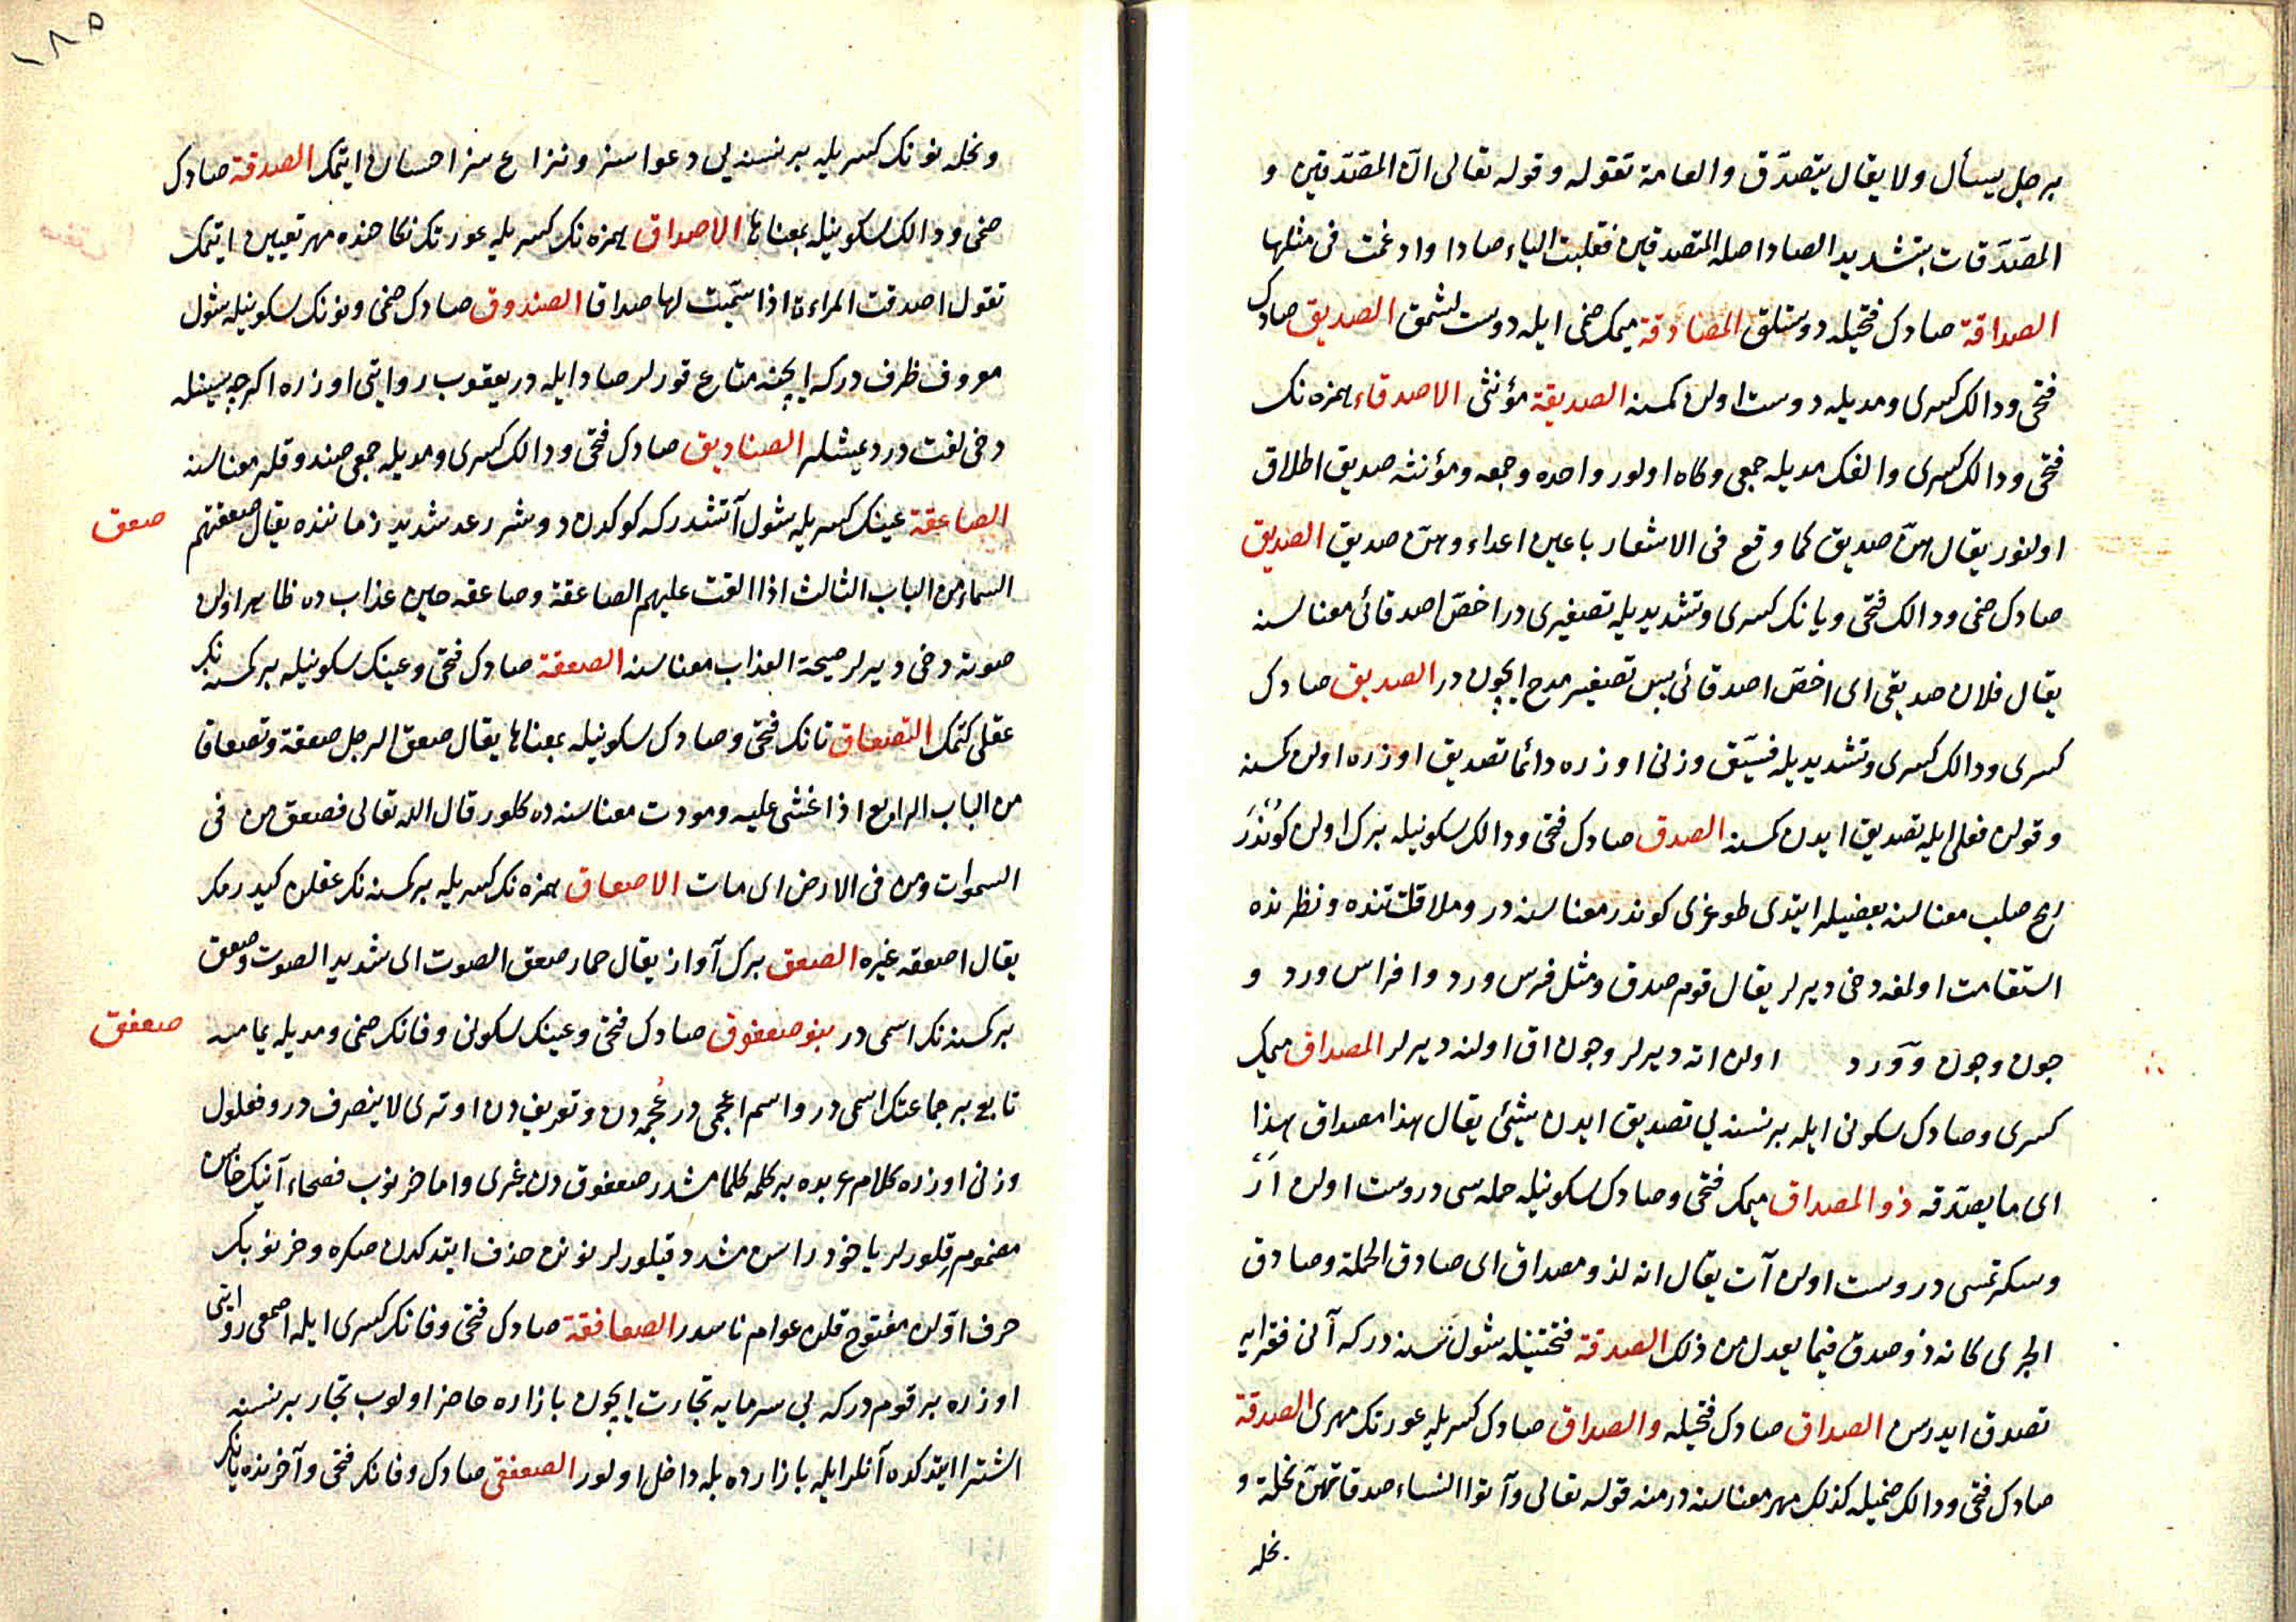 برجل يسأل ولا يقال يتصدّق والعامة تقوله وقوله تعالى انّ المصّدّقين و
المصّدّقات بتشديد الصاد اصله المتصدقين فقلبت التاء صادا وادغمت فى مثلها
الصداقة صادك فتحيله دوستلق المصادقة ميمك ضمى ايله دوست لشمق الصديق صادك
فتحى ودالك كسرى ومديله دوست اولن كمسنه الصديقة مؤنثى الاصدقاء همزه نك
فتحى ودالك كسرى والفك مديله جمعى وكاه اولور واحده وجمعه ومؤنثه صديق اطلاق
اولنور يقال هنّ صديق كما وقع فى الاشعار باعين اعداء وهنّ صديق الصديق
صادك ضمى ودالك فتحى ويانك كسرى وتشديديله تصغيرى در اخصّ اصدقائى معناسنه
يقال فلان صديقى اى اخصّ اصدقائى پس تصغير مدح ايچون در الصديق صادك
كسرى ودالك كسرى وتشديديله فسّيق وزنى اوزره دائما تصديق اوزره اولن كمسنه
وقولن فعلى ايله تصديق ايدن كمسنه الصدق صادك فتحى ودالك سكونيله برك اولن كوندر
رمح صلب معناسنه بعضيلر ايتدى طوغرى كوندر معناسنه در وملاقاتنده ونظرنده
استقامت اولنه دخى ديرلر يقال قوم صدق ومثل فرس ورد وافراس ورد و
جون وجون وورد اولن اته ديرلر وجون اق اولنه ديرلر المصداق ميمك
كسرى وصادك سكونى ايله برنسنه يى تصديق ايدن شيئ يقال هذا مصداق هذا
اى ما يصدّقه ذو المصداق ميمك فتحى وصادك سكونيله حمله سى دروست اولن ار
وسكرتمسى دروست اولن آت يقال انه لذو مصداق اى صادق الحملة وصادق
الجرى كانه ذو صدق فيما يعدل من ذلك الصدقة فتحتينله شول نسنه در كه آنى فقرايه
تصدق ايدرسن الصداق صادك فتحيله والصداق صادك كسريله عورتك مهرى الصدقة
صادك فتحى ودالك ضميله كذلك مهر معناسنه در منه قوله تعالى وآتوا النساء صدقاتهنّ نحلة و
نحله
١٨٥
ونحله نونك كسريله برنسنه يى دعواسز ونزاع سز احسان ايتمك الصدقة صادك
ضمى ودالك سكونيله بمعناها الاصداق همزه نك كسريله عورتك نكاحنده مهر تعيين ايتمك
تقول اصدقت المراءة اذا سمّيت لها صداقا الصندوق صادك ضمى ونونك سكونيله شول
معروف ظرف در كه ايچنه متاع قورلر صاد ايله در يعقوب روايتى اوزره اكرچه سينله
دخى لغت در ديمشلر الصناديق صادك فتحى ودالك كسرى ومديله جمعى صندوقلر معناسنه
صعق
الصاعقة عينك كسريله شول آتشدر كه كوكدن دوشر رعد شديد زماننده يقال صعقتهم
السماء من الباب الثالث اذا القت عليهم الصاعقة وصاعقه حين عذاب ده ظاهر اولن
صوته دخى ديرلر صيحة العذاب معناسنه الصعقة صادك فتحى وعينك سكونيله بر كمسنه نك
عقلى كتمك التصعاق تانك فتحى وصادك سكونيله بمعناها يقال صعق الرجل صعقة وتصعاقا
من الباب الرابع اذا غشى عليه ومودت معناسنه ده كلور قال الله تعالى فصعق من فى
السموات ومن فى الارض اى مات الاصعاق همزه نك كسريله بر كمسنه نك عقلن كيدرمك
يقال اصعقه غيره الصعق برك آواز يقال حمار صعق الصوت اى شديد الصوت وصعق
صعفق
بر كمسنه نك اسمى در بنو صعفوق صادك فتحى وعينك سكونى وفانك ضمى ومديله يمامه
تابع بر جماعتك اسمى در واسم اعجمى در عجمه دن وتعريف دن اوترى لاينصرف در وفعلول
وزنى اوزره كلام عربده بر كلمه كلمامشدر صعفوق دن غيرى واما خرنوب فصحاء آنك خاسن
مضموم قلورلر ياخود راسن مشدد قيلورلر نونن حذف ايتدكدن صكره وخرنوبك
حرف اوّلن مفتوح قلن عوام ناسدر الصعافقة صادك فتحى وفانك كسرى ايله اصمعى روايتى
اوزره بر قوم در كه بى سرمايه تجارت ايچون بازاره حاضر اولوب تجار برنسنه
اشترا ايتدكده آنلر ايله بازارده بله داخل اولور الصعفقى صادك وفانك فتحى وآخرنده يانك